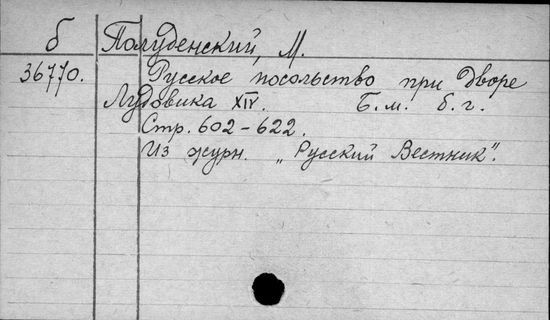 б Полуденский, М.
36770. Русское посольство при дворе
Лудовика XIV. Б.м. б.г.
Стр. 602-622.
Из журн. „Русский Вестник".